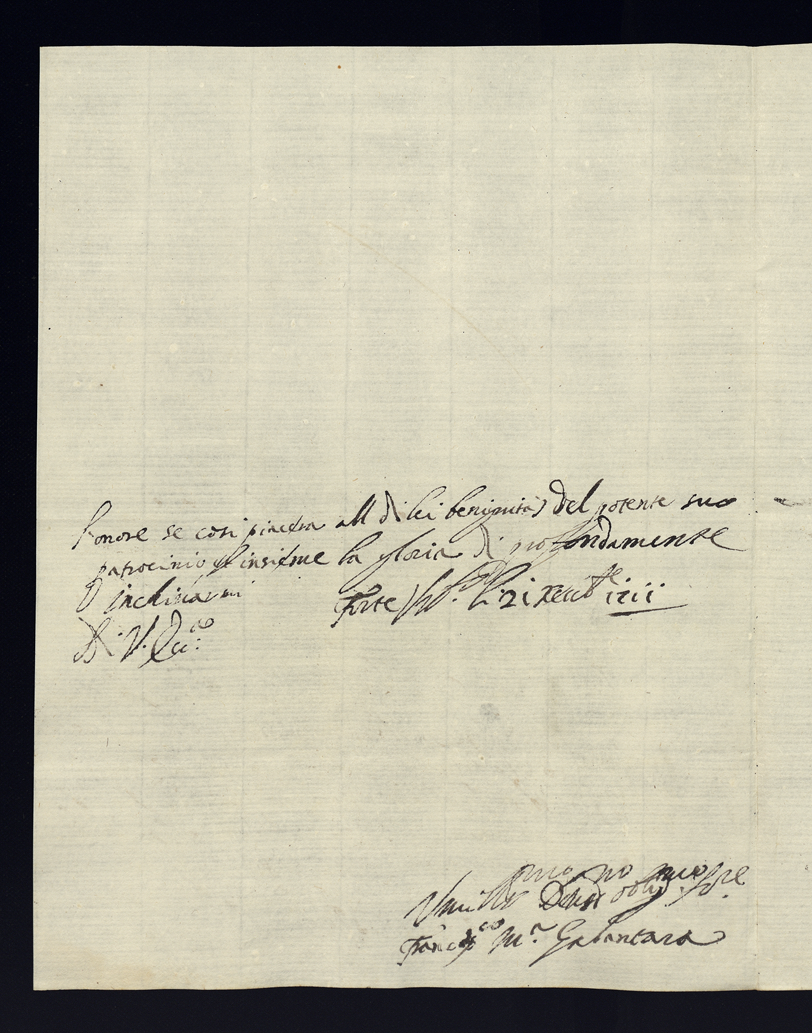 l'onore se così piacerà all di lei benignità del potente suo
patrocinio, ed insieme la gloria di profondamente
inchinarmi Forte Xbre 1711
Di V. Ecc.a
mo mo
Umill Devot obblig Sre
Franc.co M.a Galantara